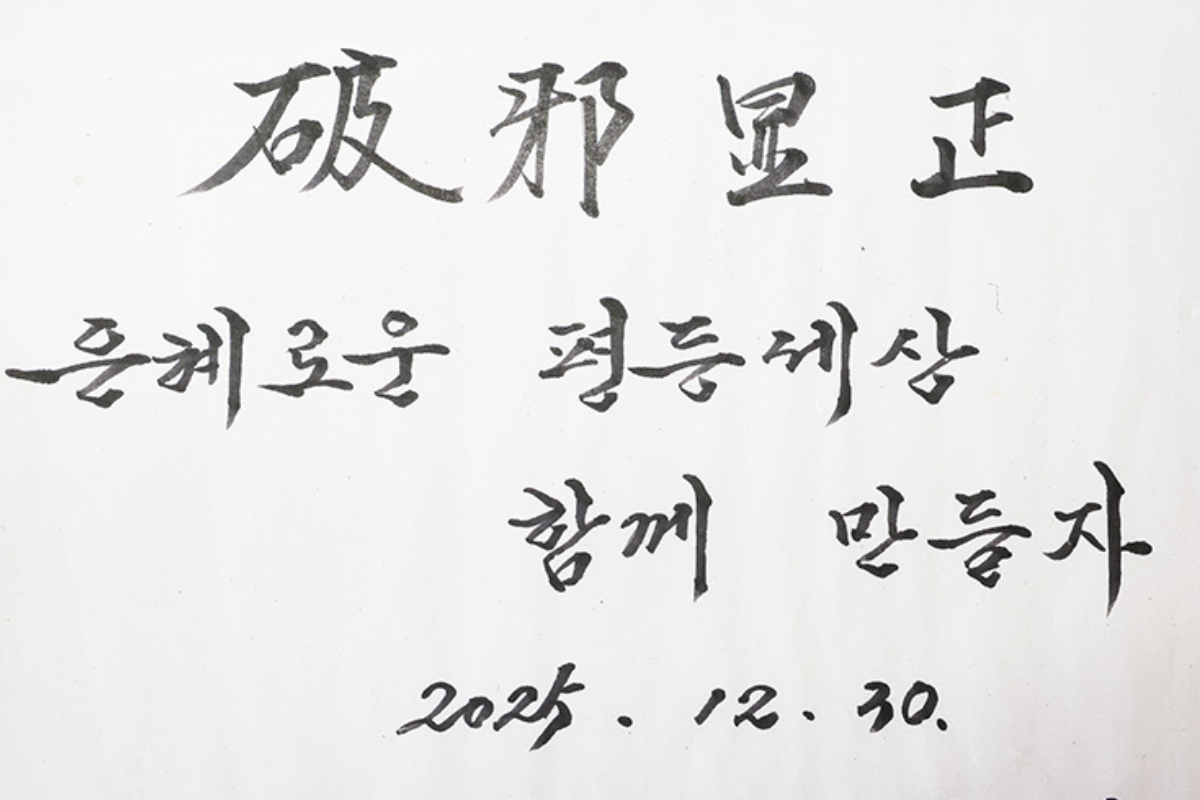 破邪显正
은혜로운 평등세상
함께 만들자
2025. 12. 30.